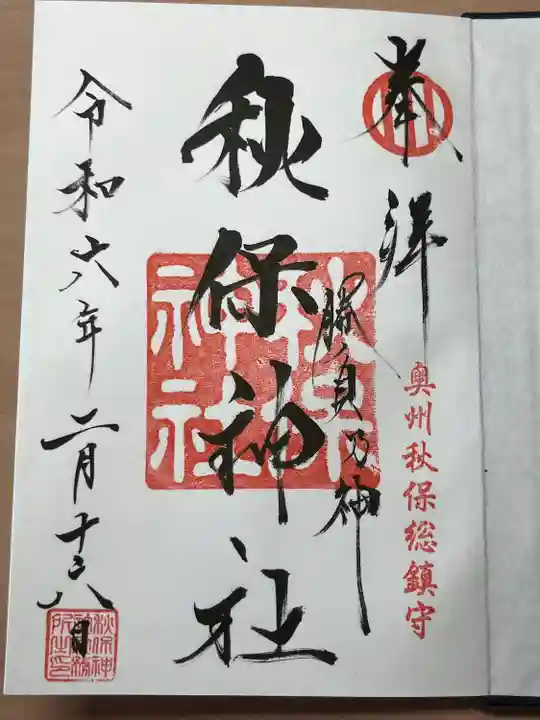 奉拝
奥州秋保総鎮守
勝負乃神
秋保神社
秋保神社
令和六年二月十八日